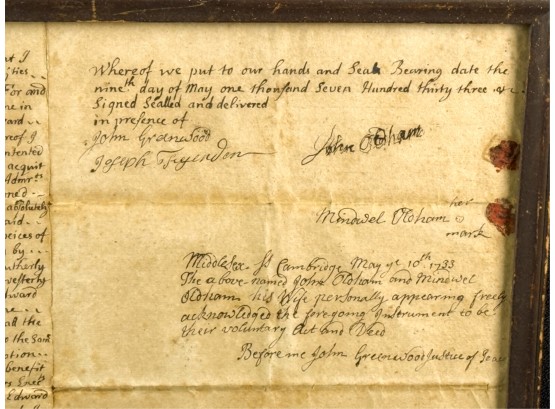 t I
ties
For and
ne in
ward
reof I
ntented
acquit
Admrs
oned
absolutely
aid
peices of
by
utherly
westerly
dward
me
all the
to the Som
otion
benefit
Edward
Whereof we put to our hands and Seals Bearing date the
nineth day of May one thousand Seven Hundred thirty three &c
Signed Sealled and delivered
in presence of
John Greenwood
Joseph
John Oldham
her
Mindwel Oldham
mark
Middlesex Ss Cambridge May ye 10th 1733
The above named John Oldham and Mindwel
Oldham his Wife personally appearing freely
acknowledged the foregoing Instrument to be
their voluntary Act and Deed
Before me John Greenwood Justice of Peace